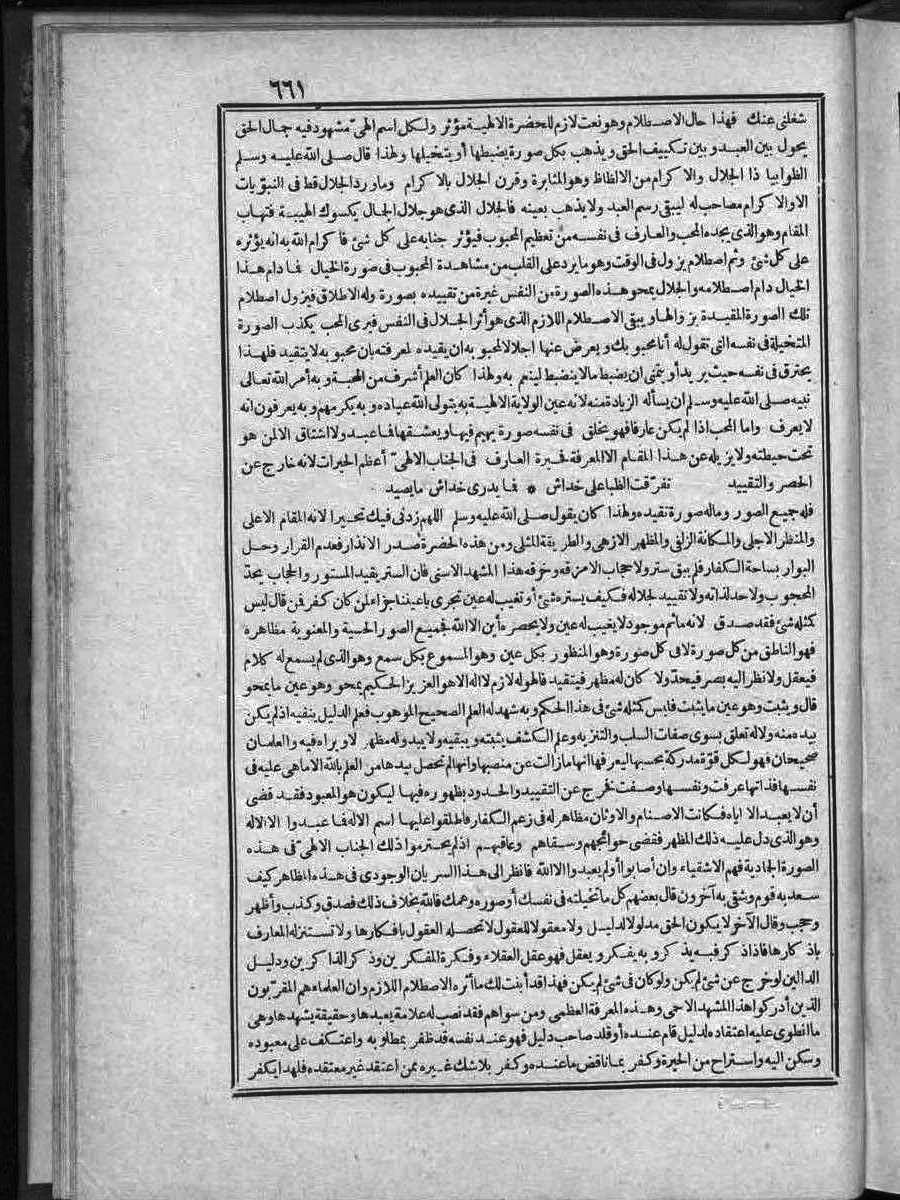 ٦٦١
شغلني عنك فهذا حال الاصطلام وهو نعت لازم للحضرة الالهية مؤثر ولكل اسم الهي مشهود فيه جمال الحق
يحول بين العبد وبين تكييف الحق ويذهب بكل صورة يضبطها أو يتخيلها ولهذا قال صلى الله عليه وسلم
الظوا بيا ذا الجلال والاكرام من الالظاظ وهو المثابرة وقرن الجلال بالاكرام وما ورد الجلال قط في النبوّيات
الا والاكرام مصاحب له ليبقى رسم العبد ولا يذهب بعينه فالجلال الذي هو جلال الجمال يكسوك الهيبة فتهاب
المقام وهو الذي يجده المحب والعارف في نفسه من تعظيم المحبوب فيؤثر جنابه على كل شئ فاكرام الله به انه يؤثره
على كل شئ وثم اصطلام يزول في الوقت وهو ما يرد على القلب من مشاهدة المحبوب في صورة الخيال فما دام هذا
الخيال دام اصطلامه والجلال يمحو هذه الصورة من النفس غيرة من تقييده بصورة وله الاطلاق فيزول اصطلام
تلك الصورة المقيدة بزوالها ويبقى الاصطلام اللازم الذي هو أثر الجلال في النفس فيرى المحب يكذب الصورة
المتخيلة في نفسه التي تقول له أنا محبوبك ويعرض عنها اجلالا لمحبوبه ان يقيده لمعرفته بان محبوبه لا يتقيد فلهذا
يحترق في نفسه حيث يريد أو يتمنى ان يضبط ما لا ينضبط لينعم به ولهذا كان العلم أشرف من المحبة وبه أمر الله تعالى
نبيه صلى الله عليه وسلم ان يسأله الزيادة منه لانه عين الولاية الالهية به يتولى الله عباده وبه يكرمهم وبه يعرفون انه
لا يعرف واما المحب اذا لم يكن عارفا فهو يخلق في نفسه صورة يهيم فيها ويعشقها فما عبد ولا اشتاق الا لمن هو
تحت حيطته ولا يزيله عن هذا المقام الا المعرفة فحيرة العارف في الجناب الالهي أعظم الحيرات لانه خارج عن
الحصر والتقييد تفرّقت الظبا على خداش * فما يدرى خداش ما يصيد
فله جميع الصور وما له صورة تقيده ولهذا كان يقول صلى الله عليه وسلم اللهم زدني فيك تحيرا لانه المقام الاعلى
والمنظر الاجلى والمكانة الزلفى والمظهر الازهى والطريقة المثلى ومن هذه الحضرة صدر الانذار فعدم القرار وحل
البوار بساحة الكفار فلم يبق ستر ولا حجاب الا مزقه وخرقه هذا المشهد الاسنى فان الستر يقيد المستور والحجاب يحدّ
المحجوب ولا حد لذاته ولا تقييد لجلاله فكيف يستره شئ أو تغيب له عين تجري باعيننا جزاء لمن كان كفر فمن قال ليس
كمثله شئ فقد صدق لانه ما ثم موجود لا يغيب له عين ولا يحصره أين الا الله فجميع الصور الحسية والمعنوية مظاهره
فهو الناطق من كل صورة لا في كل صورة وهو المنظور بكل عين وهو المسموع بكل سمع وهو الذي لم يسمع له كلام
فيعقل ولا نظر اليه بصر فيحدّ ولا كان له مظهر فيتقيد فالهو له لازم لا اله الا هو العزيز الحكيم يمحو وهو عين ما يمحو
قال ويثبت وهو عين ما يثبت فليس كمثله شئ في هذا الحكم وبه شهد له العلم الصحيح الموهوب فعلم الدليل ينفيه اذ لم يكن
بيده منه ولا له تعلق بسوى صفات السلب والتنزيه وعلم الكشف يثبته ويبقيه ولا يبدو له مظهر لا ويراه فيه والعلمان
صحيحان فهو لكل قوّة مدركة بحسبها ليعرفها انها ما زالت عن منصبها وانها لم تحصل بيدها من العلم بالله الا ما هي عليه في
نفسها فذاتها عرفت ونفسها وصفت تخرج عن التقييد والحدود بظهوره فيها ليكون هو المعبود فقد قضى
أن لا يعبد الا اياه فكانت الاصنام والاوثان مظاهر له في زعم الكفار فاطلقوا عليها اسم الاله فما عبدوا الا الاله
وهو الذي دل عليه ذلك المظهر فقضى حوائجهم وسقاهم وعاقبهم اذ لم يحترموا ذلك الجناب الالهي في هذه
الصورة الجمادية فهم الاشقياء وان أصابوا أو لم يعبدوا الا الله فانظر الى هذا السريان الوجودي في هذه المظاهر كيف
سعد به قوم وشقي به آخرون قال بعضهم كل ما تخيلته في نفسك أو صوره وهمك فالله بخلاف ذلك فصدق وكذب وأظهر
وحجب وقال الآخر لا يكون الحق مدلولا لدليل ولا معقولا للعقول لا تحصله العقول بافكارها ولا تستنزله المعارف
باذكارها فاذا ذكر فبه يذكر وبه يفكر ويعقل فهو عقل العقلاء وفكرة المفكرين وذكر الذاكرين ودليل
الدالين لو خرج عن شئ لم يكن ولو كان في شئ لم يكن فهذا قد أبنت لك ما أثره الاصطلام اللازم وان العلماء هم المقربون
الذين أدركوا هذا المشهد الاحمى وهذه المعرفة العظمى ومن سواهم فقد نصب له علامة يعبدها وحقيقة يشهدها وهي
ما انطوى عليه اعتقاده لدليل قام عنده أو قلد صاحب دليل فهو عند نفسه قد ظفر بمطلوبه واعتكف على معبوده
وسكن اليه واستراح من الحيرة وكفر بما ناقض ما عنده وكفر بلا شك غيره ممن اعتقد غير معتقده فلهذا يكفر